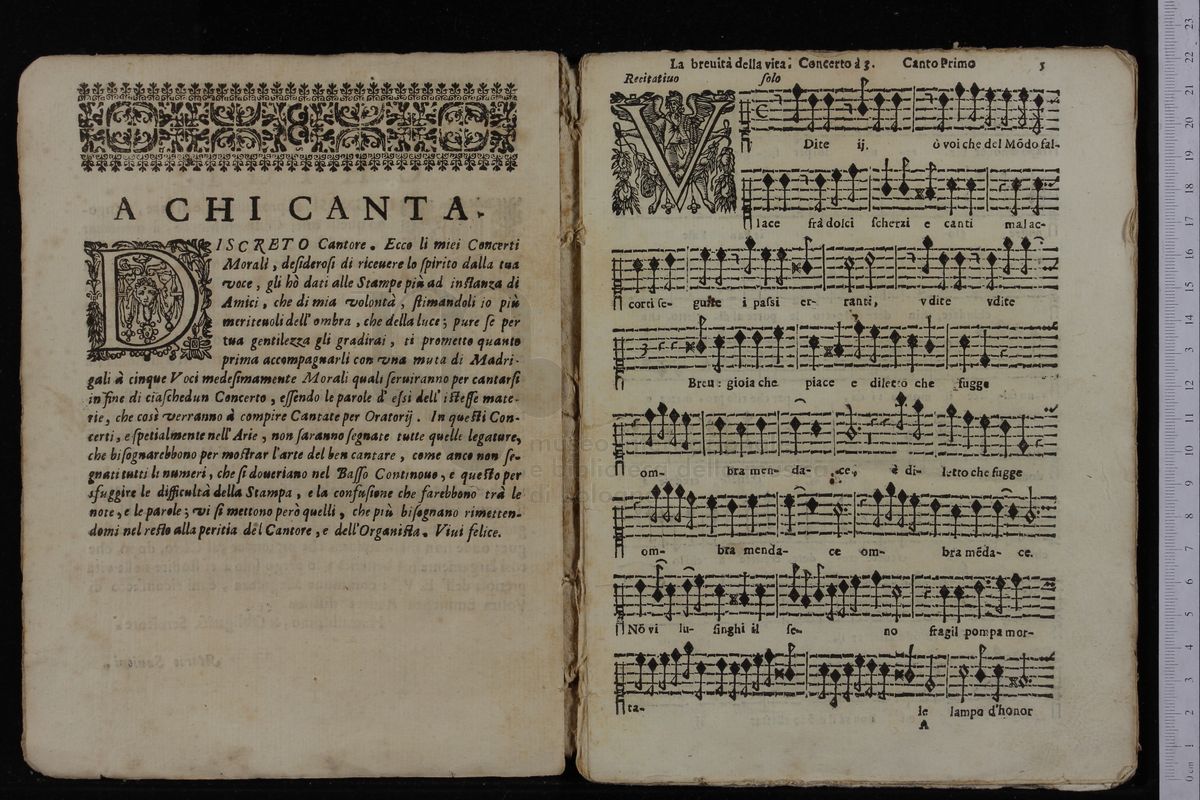 A CHI CANTA.
DISCRETO Cantore. Ecco li miei Concerti
Morali, desiderosi di riceuere lo spirito dalla tua
voce, gli hò dati alle Stampe più ad instanza di
Amici, che di mia volontà, stimandoli io più
meriteuoli dell'ombra, che della luce; pure se per
tua gentilezza gli gradirai, ti prometto quanto
prima accompagnarli con vna muta di Madri-
gali à cinque Voci medesimamente Morali quali seruiranno per cantarsi
in fine di ciaschedun Concerto, essendo le parole d'essi dell'istesse mate-
rie, che così verranno à compire Cantate per Oratorij. In questi Con-
certi, e spetialmente nell'Arie, non saranno segnate tutte quelle legature,
che bisognarebbono per mostrar l'arte del ben cantare, come anco non se-
gnati tutti li numeri, che si doueriano nel Basso Continouo, e questo per
sfuggire le difficultà della Stampa, e la confusione che farebbono trà le
note, e le parole; vi si mettono però quelli, che più bisognano rimetten-
domi nel resto alla peritia del Cantore, e dell'Organista. Viui felice.
La breuità della vita. Concerto à 3. Canto Primo 5
Recitatiuo solo
VDite ij. ò voi che del Mōdo fal-
lace frà dolci scherzi e canti mal ac-
corti se- guite i passi er- ranti, vdite vdite
Breue gioia che piace e diletto che fugge
om- bra men- da- ce, è di- letto che fugge
om- bra menda- ce om- bra mēda- ce.
Nō vi lu- singhi il se- no fragil pompa mor-
ta- le lampo d'honor
A